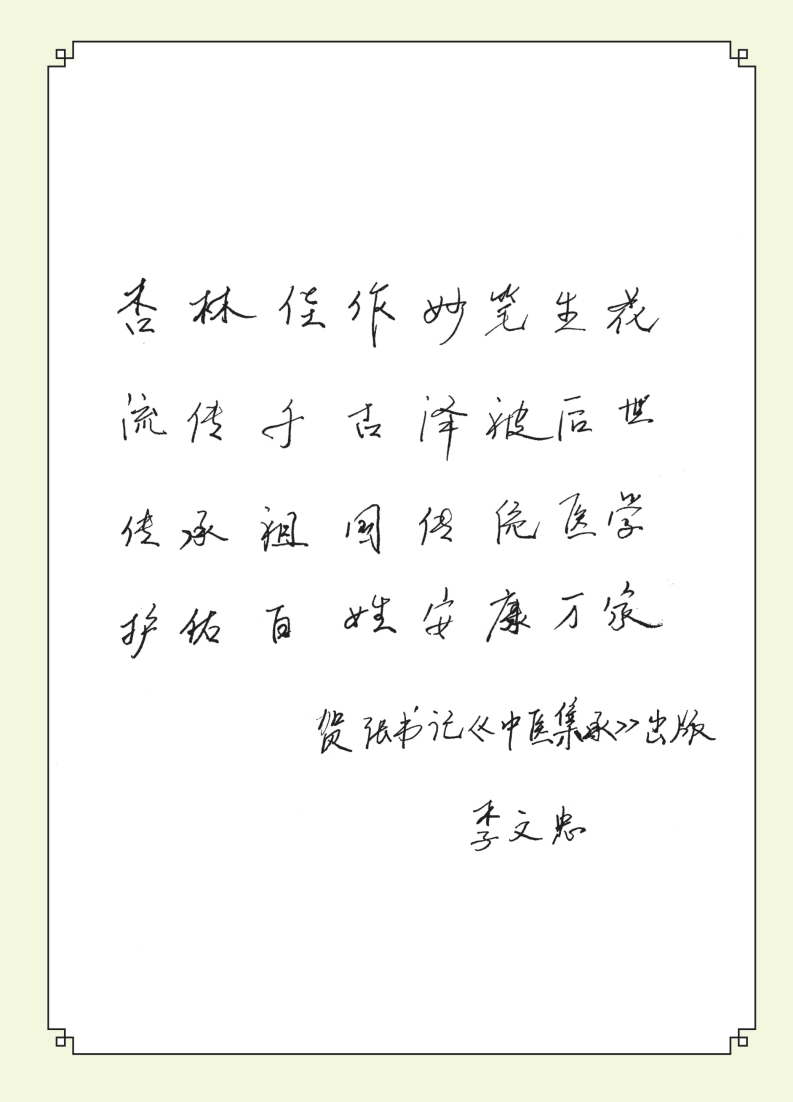 杏林佳作妙笔生花
流传千古泽被后世
传承祖国传统医学
护佑百姓安康万家
贺张书记《中医集承》出版
李文忠